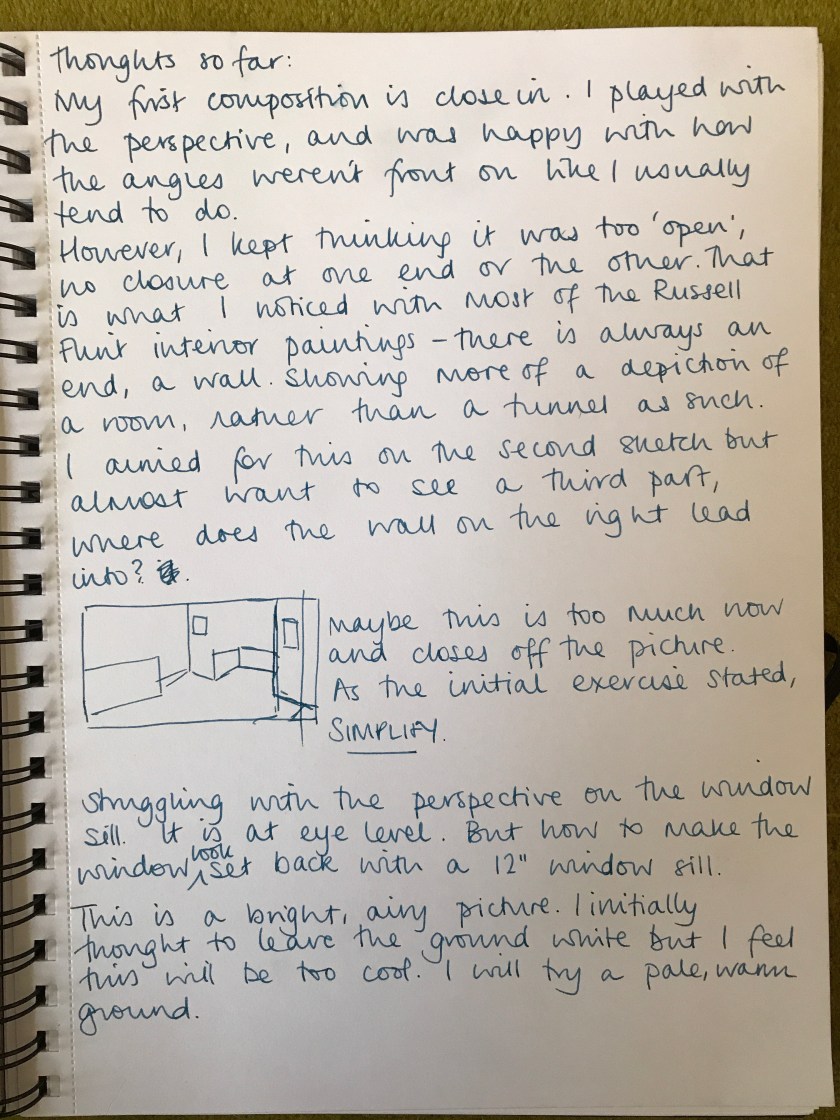 Thoughts so far:
My first composition is close in. I played with
the perspective, and was happy with how
the angles weren't front on like I usually
tend to do.
However, I kept thinking it was too 'open',
no closure at one end or the other. That
is what I noticed with most of the Russell
Flint interior paintings – there is always an
end, a wall. Showing more of a depiction of
a room, rather than a tunnel as such.
I aimed for this on the second sketch but
almost want to see a third part,
where does the wall on the right lead
into?
Maybe this is too much now
and closes off the picture.
As the initial exercise stated,
SIMPLIFY.
Struggling with the perspective on the window
sill. It is at eye level. But how to make the
window look set back with a 12" window sill.
This is a bright, airy picture. I initially
thought to leave the ground white but I feel
this will be too cool. I will try a pale, warm
ground.